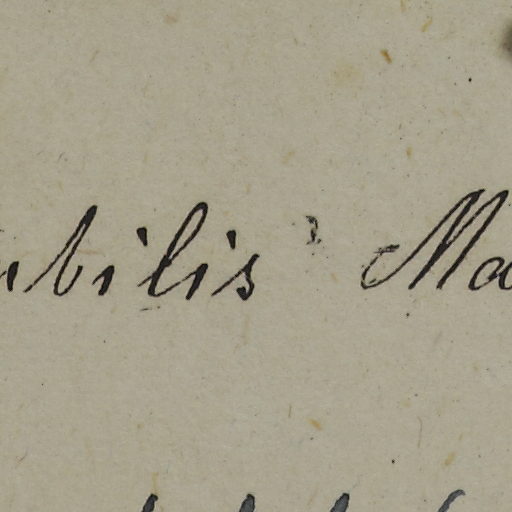 ubilis Ma